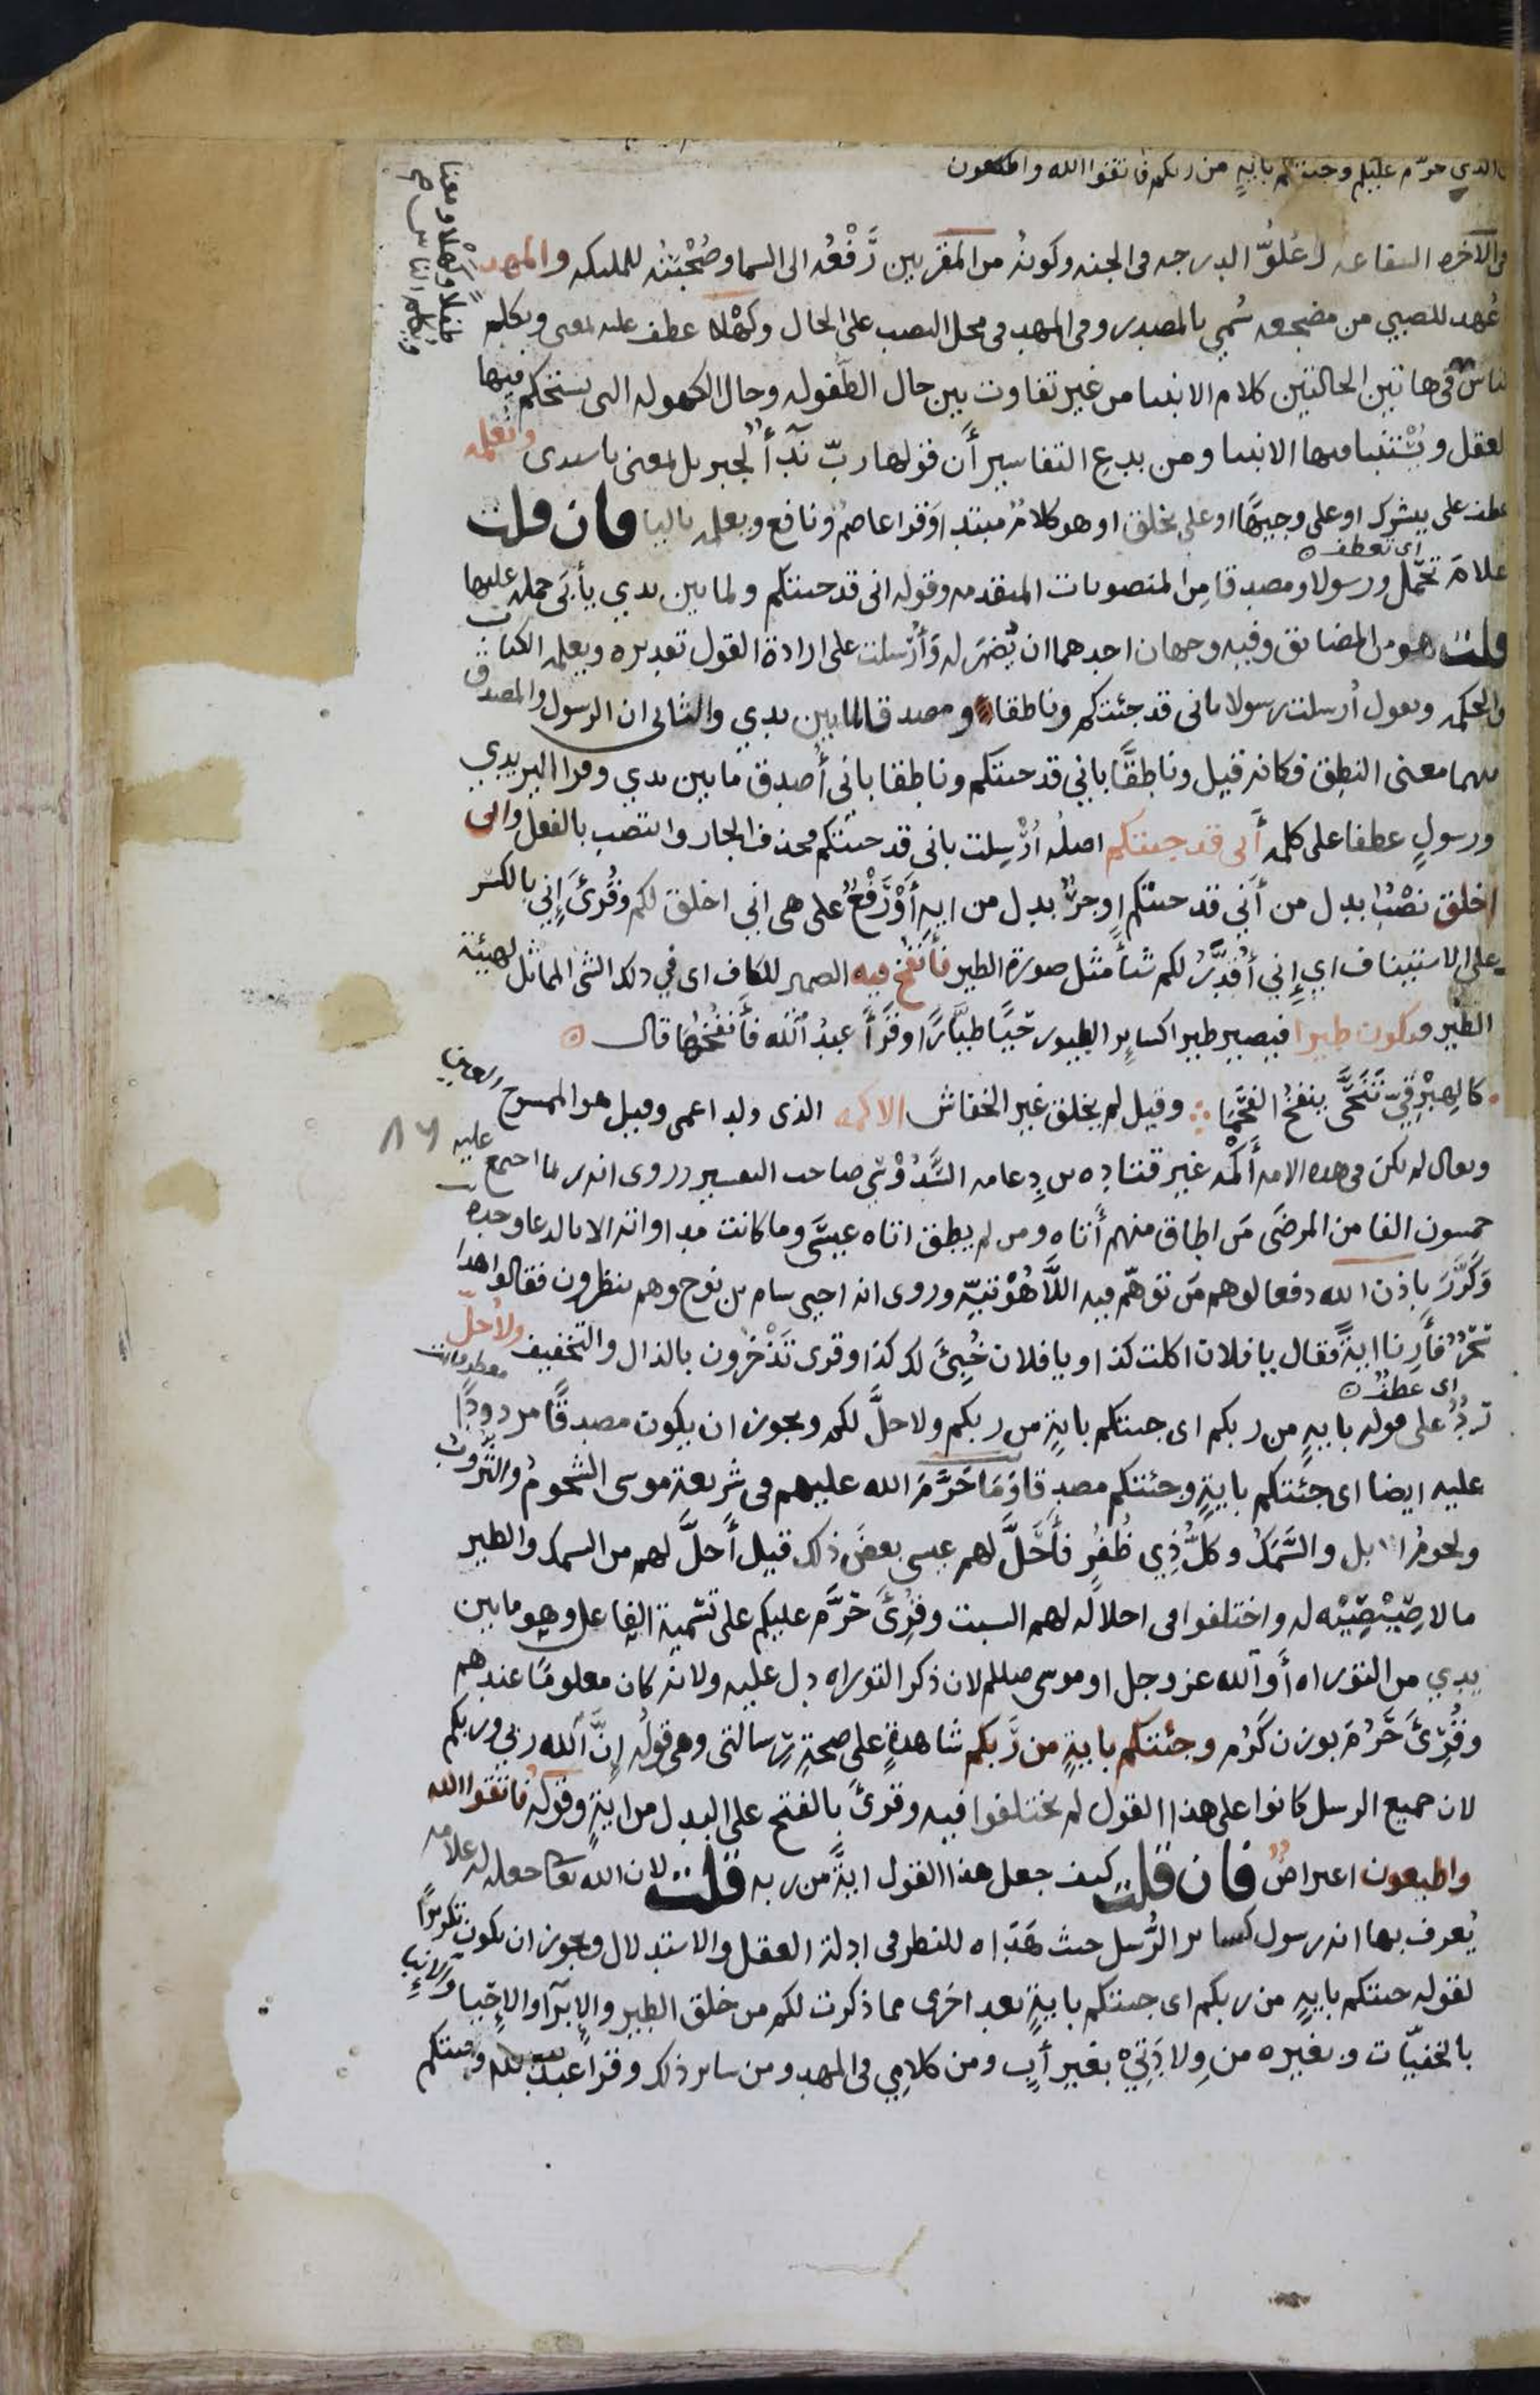 الذي حرّم عليكم وجئتكم باية من ربكم فاتقوا الله واطيعون
في الاخره الشفاعه وعُلوّ الدرجه في الجنه وكونهُ من المقربين رَفْعُه الى السما وصُحْبَتُه للمليكه والمهد
مُهد للصبي من مضجعه سُمي بالمصدر وفي المهد في محل النصب على الحال وكهْلا عطف عليه بمعنى ويكلم
طفلا وكهْلا ومعنا
ويكلم الناس
الناس في هاتين الحالتين كلام الانبيا من غير تفاوت بين حال الطفوله وحال الكهوله التي يستحكم فيها
العقل ويُسْتنبا فيها الانبيا ومن بدع التفاسير أن قولها ربّ نِدَأٌ لجبريل بمعنى يا سيدي ونُعلمه
عطف على يبشرك او على وجيهًا او على يخلق او هو كلامٌ مبتدا وقرا عاصمٌ ونافع ويعلمه باليا فان قلت
اى تعطف
علامَ تحمّل ورسولا ومصدقا من المنصوبات المتقدمه وقوله اني قد جئتكم ولما بين يدي يأبى حمله عليها
قلت هو من المضايق وفيه وجهان احدهما ان يُضمرَ له وَأُرسلت على ارادة القول تقديره ويعلمه الكتاب
والحكمه ويقول أرسلت رسولا باني قد جئتكم وناطقا ومصدقا لما بين يدي والثاني ان الرسول والمصدق
فيهما معنى النطق فكانه قيل وناطقًا باني قد جئتكم وناطقا باني أصدق ما بين يدي وقرا اليزيدي
ورسولٍ عطفا على كلمه أنى قد جئتكم اصلُه أُرْسِلت باني قد جئتكم فحذف الجار وانتصب بالفعل وانى
اخلق نصْبٌ بدل من أني قد جئتكم او جرٌّ بدل من ايه أوْ رَفْعٌ على هى اني اخلق لكم وقُرئ إني بالكسر
على الاستيناف اي إِني أُقدِّرُ لكم شيأ مثل صورة الطير فأنفُخ فيه الضمير للكاف اي في ذلك الشى المماثل لهيئة
الطير فيكون طيرا فيصير طيرا كسايرِ الطيور حَيًّا طيَّارًا وقرَأ عبدُ الله فأنفُخها قال
كالهِبْرِقيّ تَنَحَّى ينفخُ الفَحَمَا وقيل لم يخلق غير الخفاش الاكمه الذي ولد اعمى وقيل هو الممسوح العين
ويقال لم يكن في هذه الامه أكْمه غير قتاده بن دِعامه السَّدُوْسي صاحب التفسير وروى انه ربما اجتمع عليه
٨٦
خمسون الفا من المرضَى مَن اطاق منهم أتاه ومن لم يطق اتاه عيسَى وما كانت مداواته الا بالدعا وحده
وكرَّرَ باذن الله دفعا لوهم مَن توهّم فيه اللَّاهُوْتيّه وروى انه احيى سام بن نوح وهم ينظرون فقالوا هذا
سحرٌ فأرِنا ايةً فقال يا فلان اكلت كذا ويا فلان خُبِئَ لك كذا وقرى تَذْخرون بالذال والتخفيف ولأحلّ
اى عطف
ردٌّ على قوله بايةٍ من ربكم اى جئتكم بايةٍ من ربكم ولاحلَّ لكم ويجوز ان يكون مصدقًا مردودًا
عليه ايضا اى جئتكم بايةٍ وجئتكم مصدقا وَمَا حَرَّمَ الله عليهم في شريعة موسى الشحومُ والثُّروبُ
ولحومُ الابل والسَّمَكُ وكلُّ ذِي ظُفُرٍ فأحَلَّ لهم عيسى بعضَ ذلك قيل أحلَّ لهم من السمك والطير
ما لا صِيْصِيَه له واختلفوا في احلالَه لهم السبت وقُرِئَ حَرَّم عليكم على تسْمية الفاعل وهو ما بين
يدي من التوراه أو الله عز وجل او موسى صللم لان ذكر التوراه دل عليه ولانه كان معلومًا عندهم
وقُرئَ حَرُمَ بوزن كَرُم وجئتكم بايةٍ من رَّبكم شاهدةٍ على صحةِ رسالتى وهى قولُه إِنَّ الله ربي وربكم
لان جميع الرسل كانوا على هذا القول لم يختلفوا فيه وقرئَ بالفتح على البدل من ايةٍ وقولهُ فاتقوا الله
واطيعون اعتراضٌ فان قلت كيف جعل هذا القول ايةً من ربه قلت لان الله تعا جعله له علامه
يُعرف بها انه رسول كساير الرُّسل حيث هَدَاه للنظر في ادلة العقل والاستدلال ويجوز ان يكون تكريرًا
لقوله جئتكم بايةٍ من ربكم اى جئتكم بايةٍ بعد اخرى مما ذكرت لكم من خلق الطير والإِبرآ والإحْيا والإنبا
بالخفيّات وبغيره من وِلادَتِيْ بغير أبٍ ومن كلامِي في المهد ومن ساير ذلك وقرأ عبد الله وجئتكم